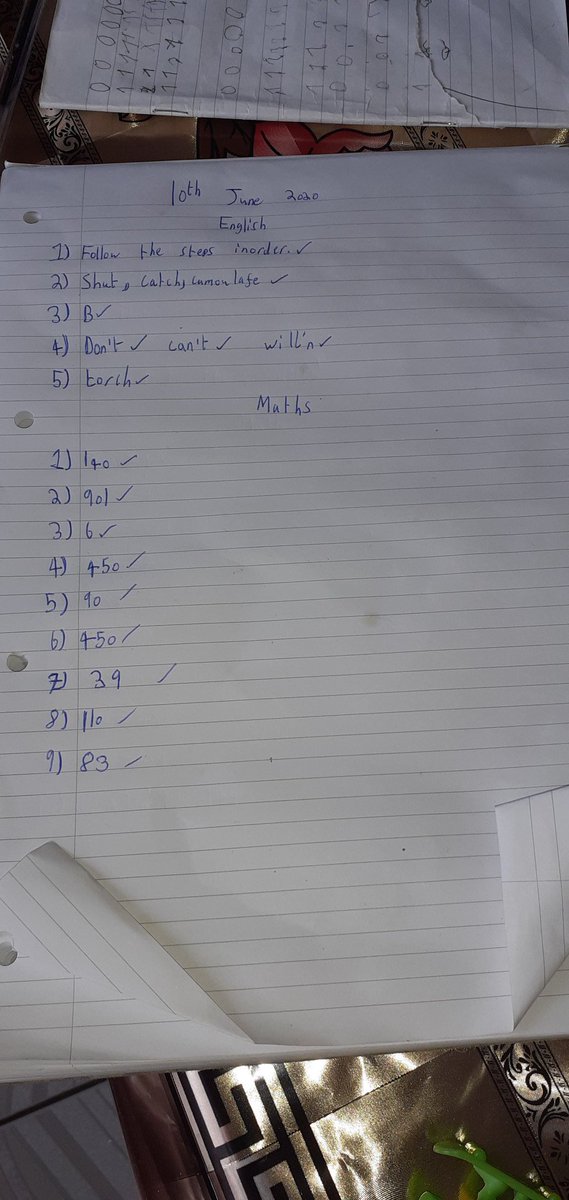 10th June 2020
English
1) Follow the steps inorder. ✓
2) Shut, Catch, ✓
3) B ✓
4) Don't ✓ can't ✓ will'n ✓
5) torch ✓
Maths
1) 140 ✓
2) 901 ✓
3) 6 ✓
4) 450 ✓
5) 90 ✓
6) 450 ✓
7) 39 ✓
8) 110 ✓
9) 83 ✓